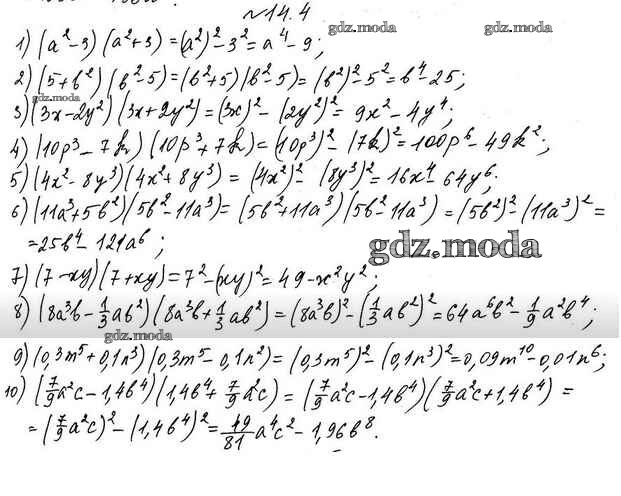 №14.4
gdz.moda
gdz.moda
1) (a²-3)(a²+3)=(a²)²-3²=a⁴-9;
2) (5+b²)(b²-5)=(b²+5)(b²-5)=(b²)²-5²=b⁴-25;
gdz.moda
3) (3x-2y²)(3x+2y²)=(3x)²-(2y²)²=9x²-4y⁴;
4) (10p³-7k)(10p³+7k)=(10p³)²-(7k)²=100p⁶-49k²;
5) (4x²-8y³)(4x²+8y³)=(4x²)²-(8y³)²=16x⁴-64y⁶;
6) (11a³+5b²)(5b²-11a³)=(5b²+11a³)(5b²-11a³)=(5b²)²-(11a³)²=
=25b⁴-121a⁶;
gdz.moda
7) (7-xy)(7+xy)=7²-(xy)²=49-x²y²;
8) (8a³b-1/3ab²)(8a³b+1/3ab²)=(8a³b)²-(1/3ab²)²=64a⁶b²-1/9a²b⁴;
gdz.moda
9) (0,3m⁵+0,1n³)(0,3m⁵-0,1n²)=(0,3m⁵)²-(0,1n³)²=0,09m¹⁰-0,01n⁶;
10) (7/9a²c-1,4b⁴)(1,4b⁴+7/9a²c)=(7/9a²c-1,4b⁴)(7/9a²c+1,4b⁴)=
=(7/9a²c)²-(1,4b⁴)²=49/81a⁴c²-1,96b⁸.